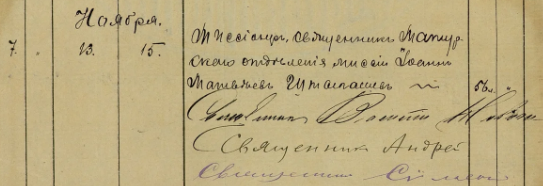 Ноября.
7. 13. 15. Миссіонеръ, священникъ Матур-
скаго отдѣленія миссіи Іоаннъ
Матвѣевъ Штыгашевъ 56 л.
Священникъ
Священникъ Андрей
Священникъ